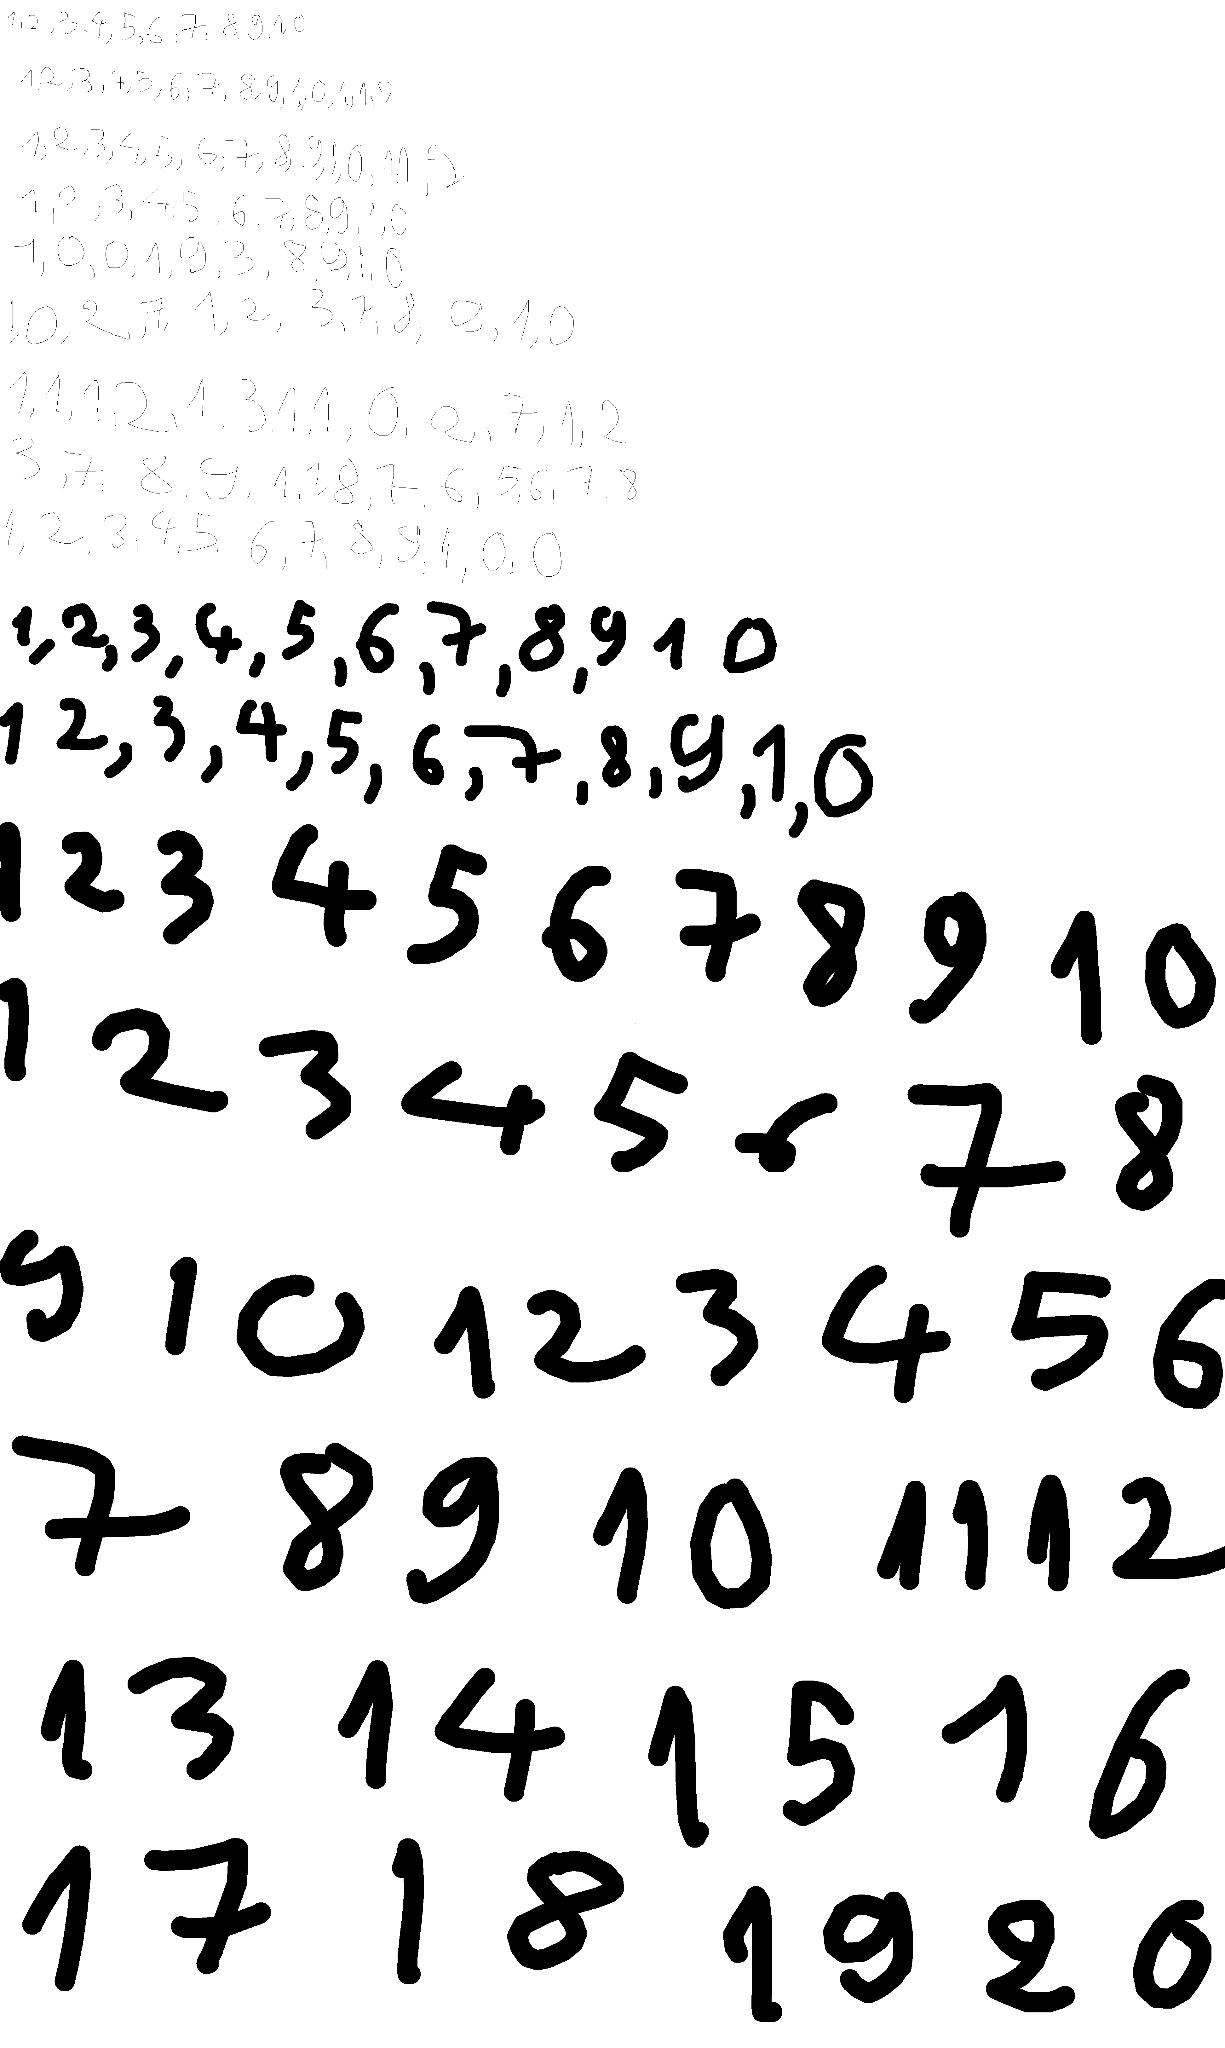 1,2,3,4,5,6,7,8,9,10
1,2,3,4,5,6,7,8,9,1,0,1,1,9
1,2,3,4,5,6,7,8,9,1,0,11,2
1,2,3,4,5,6,7,8,9,1,0
1,0,0,1,9,3,8,9,1,0
10,2,7,1,2,3,7,8,2,1,0
1,1,1,2,1,3,1,1,0,2,7,1,2
3,7,8,9,1,1,8,7,6,5,6,7,8
1,2,3,4,5,6,7,8,9,1,0,0
1,2,3,4,5,6,7,8,9 1 0
1 2,3,4,5,6,7,8,9,1,0
1 2 3 4 5 6 7 8 9 1 0
1 2 3 4 5 6 7 8
9 1 0 1 2 3 4 5 6
7 8 9 10 11 12
13 14 15 16
17 18 19 20